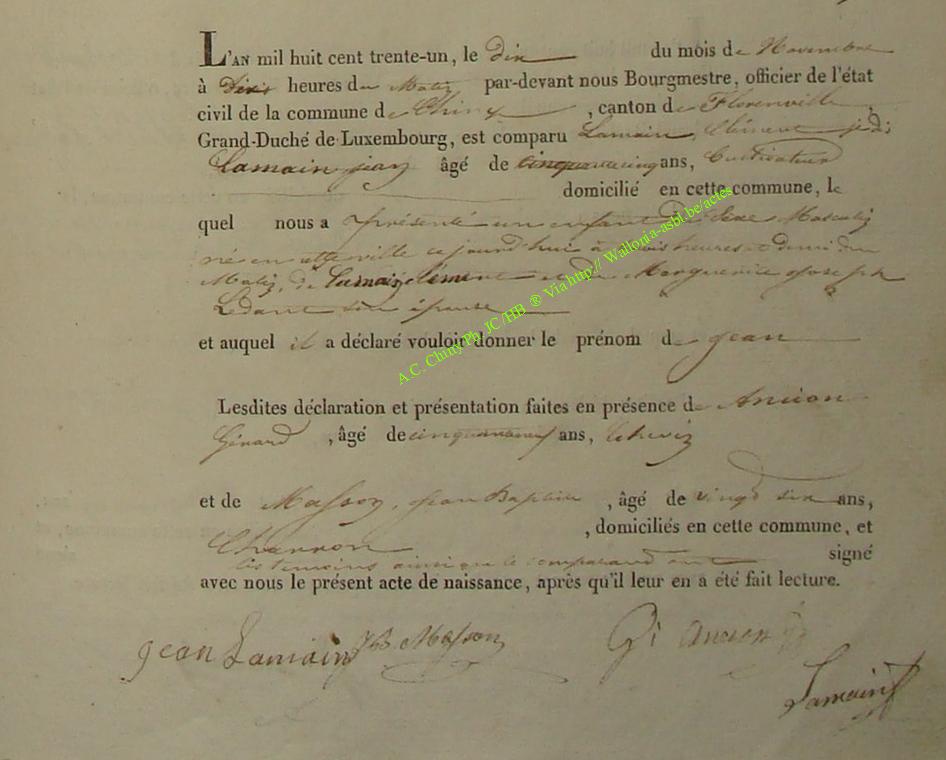 L'AN mil huit cent trente-un, le dix du mois de Novembre
à Dix heures du Matin par-devant nous Bourgmestre, officier de l'état
civil de la commune de Chiny, canton de Florenville,
Grand-Duché de Luxembourg, est comparu Lamain, Clément
Lamain jean âgé de cinquante cinq ans, Cultivateur
domicilié en cette commune, le
quel nous a présenté un enfant de Sexe Masculin
né en cette ville ce jourd'hui à trois heures et demi du
Matin, de Lamain Clément et de Marguerite Joseph
Ledant son épouse
et auquel il a déclaré vouloir donner le prénom de jean
Lesdites déclaration et présentation faites en présence de Ancion
Gérard, âgé de ans,
et de Masson, jean Baptiste, âgé de vingt six ans,
Charron, domiciliés en cette commune, et
les temoins ainsi que le comparant ont signé
avec nous le présent acte de naissance, après qu'il leur en a été fait lecture.
jean Lamain JB. Masson Gi ancion
Lamain
A.C. Chiny Ph. JC /HB ® Via http:// Wallonia-asbl.be/actes